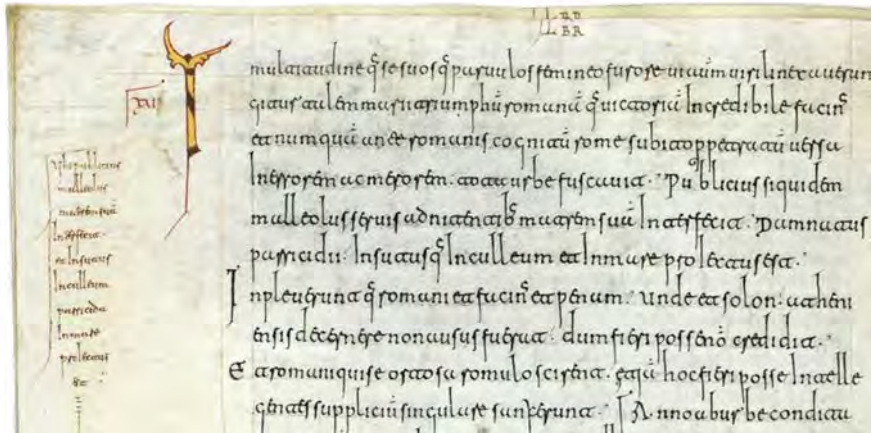 LBR
BR
mulatitudine q̄ se suosq̄ paruulos femineo furore ui autm̄ uirili nexauerun
XUI
Ɡitur autem mari triumphū romanā q̄ uictoriā Incredibile facin̄
et numquā ante romanis cognitū rome subito ppetratū uersa
Inerrorem ac merorem. tota urbe fuscauit. Publicius siquidem
malleolus seruis adnitentib̄ matrem suā Interfecit. Damnatus
parricidii. Insutusq̄ Inculleum et Inmare proIectus est.
Inpleuerunt q̄ romani et facin̄ et penam. unde et solon. atheni
ensis decernere non ausus fuerat. dum fieri posse nō credidit.
Et romani qui se ortos a romulo scirent. etiā hoc fieri posse Intelle
gentes suppliciū singulare sanxerunt. Anno ab urbe condita
Ubi publicius
malleolus
matrem suā
Interfecit
et Insutus
Inculleum
parricida
Inmare
proIectus
est